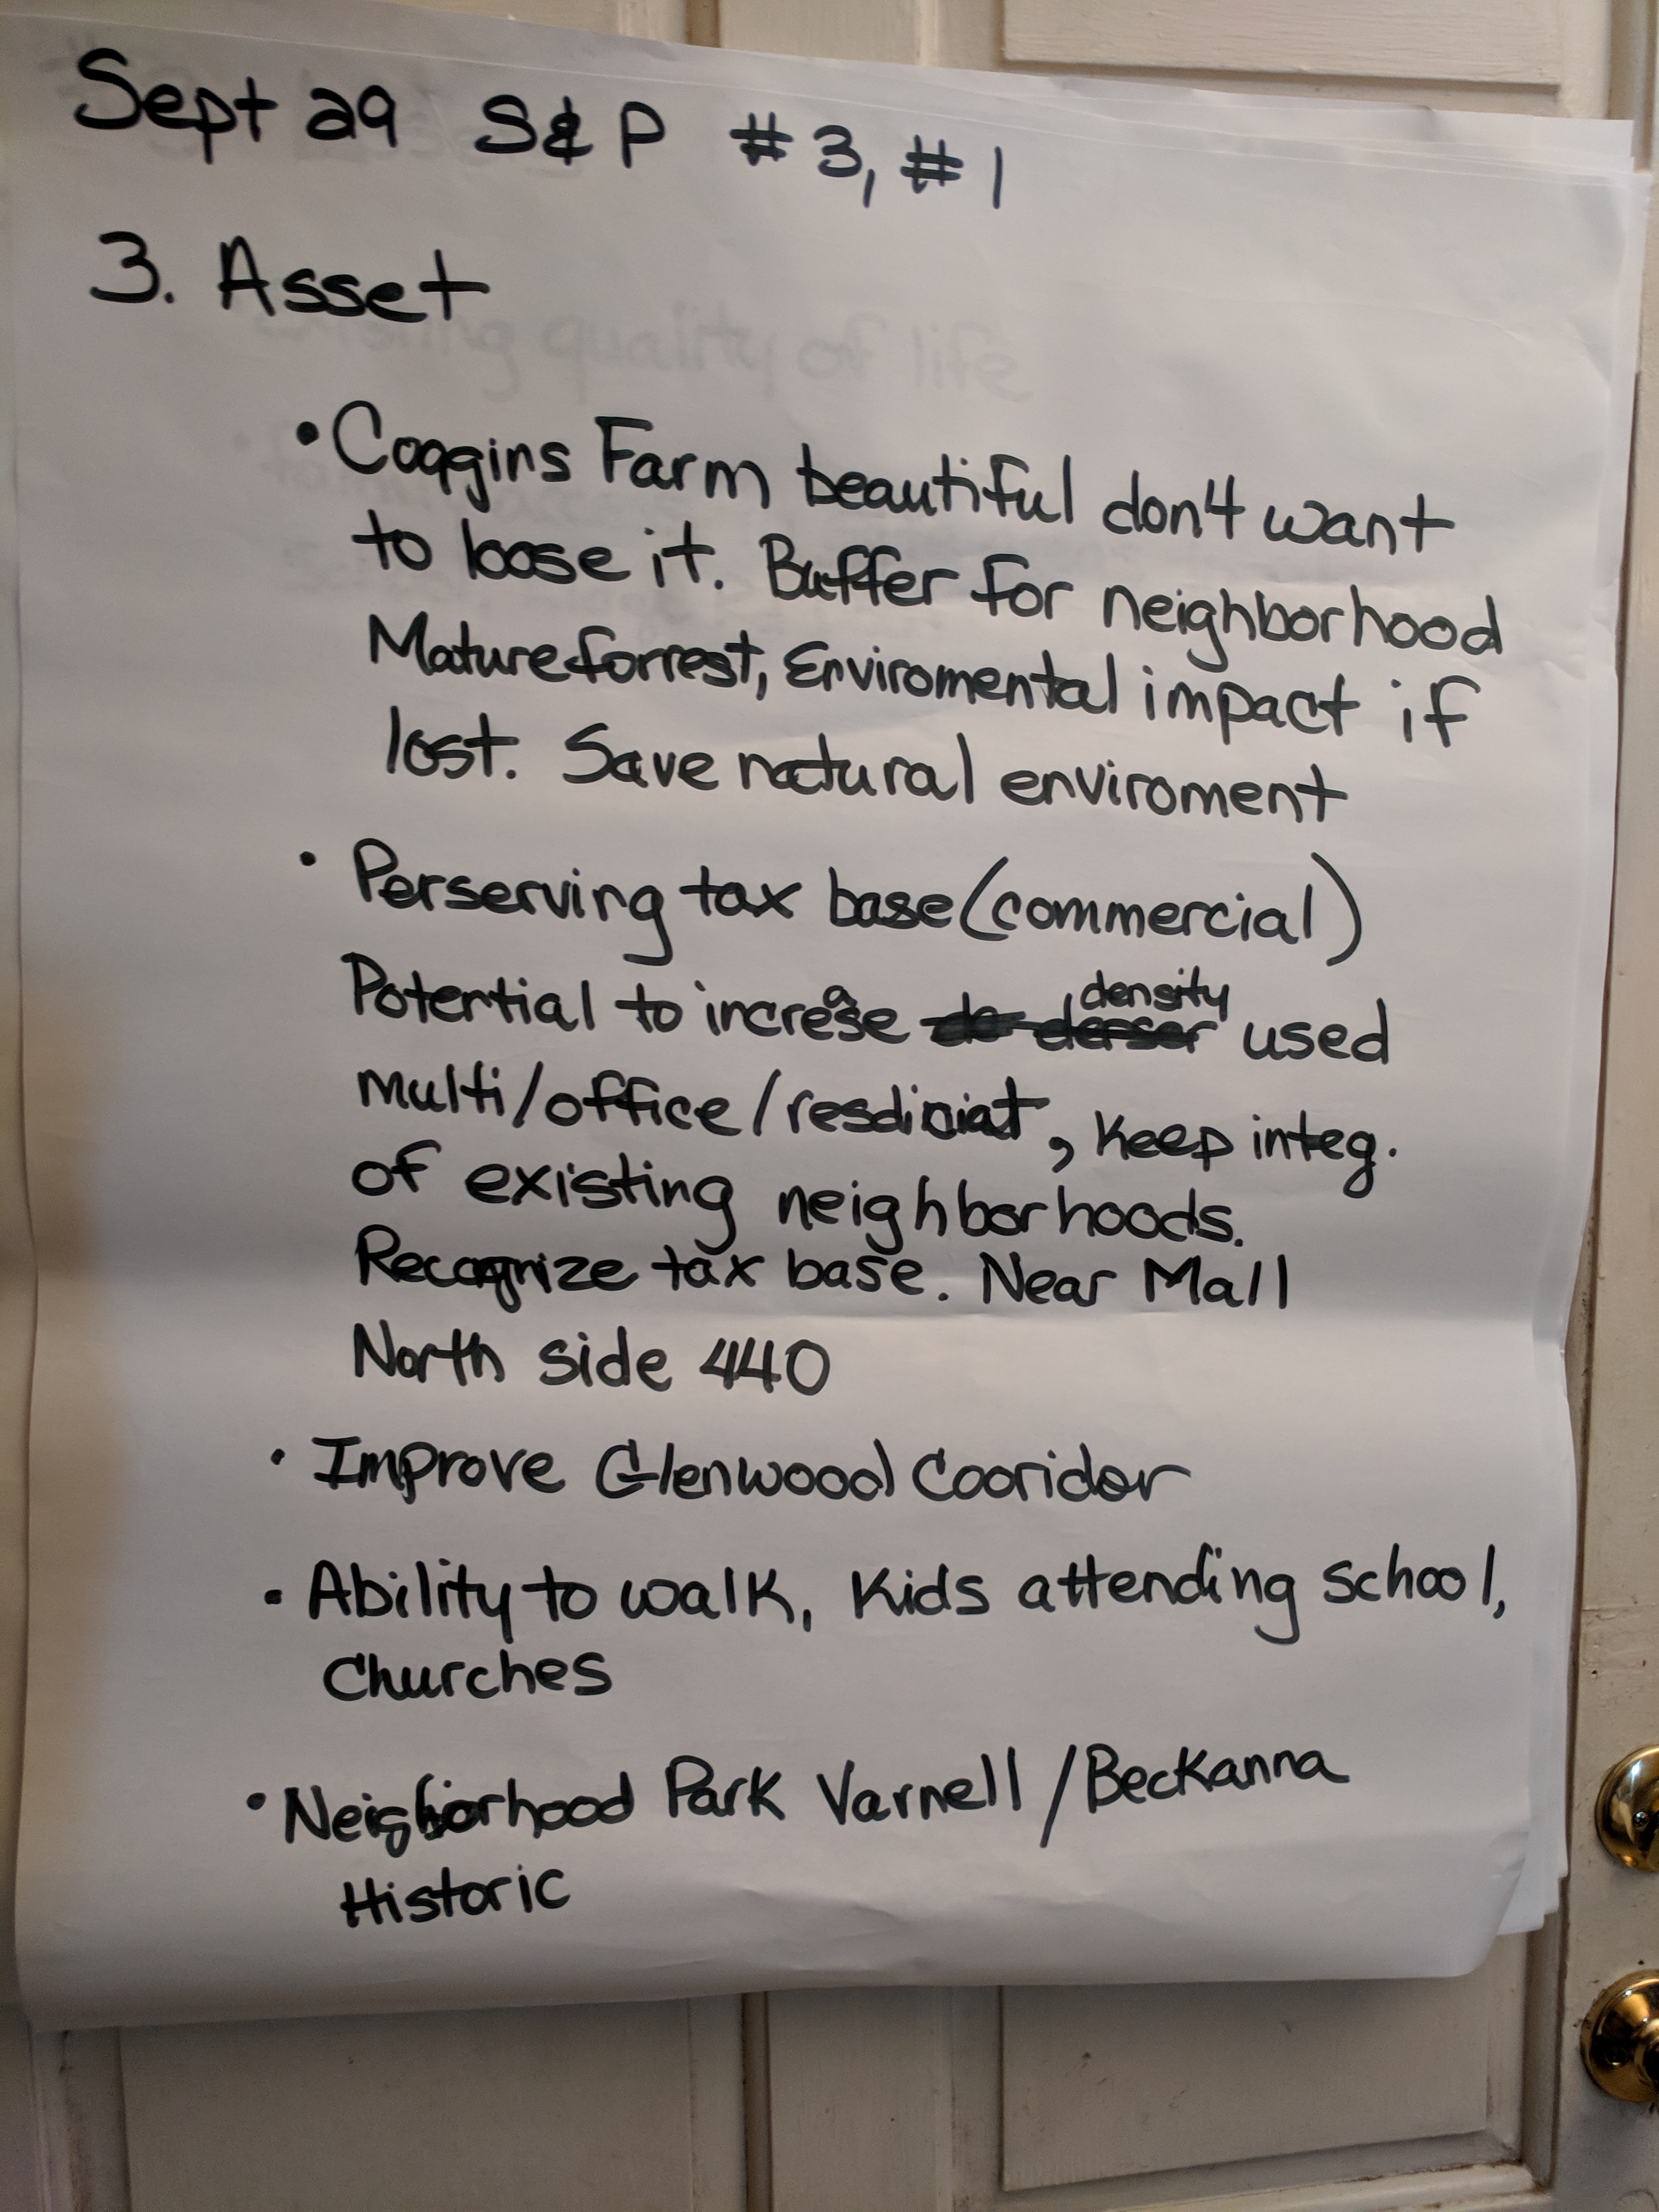 Sept 29 S&P #3, #1
3. Asset
quality of life
• Coggins Farm beautiful don't want
to loose it. Buffer for neighborhood
Mature forrest, Enviromental impact if
lost. Save natural enviroment
• Perserving tax base (commercial)
Potential to increase density used
multi/office/resdiciat, Keep integ.
of existing neighborhoods.
Recognize tax base. Near Mall
North side 440
• Improve Glenwood Cooridor
• Ability to walk, Kids attending school,
Churches
• Neighborhood Park Varnell/Beckanna
Historic